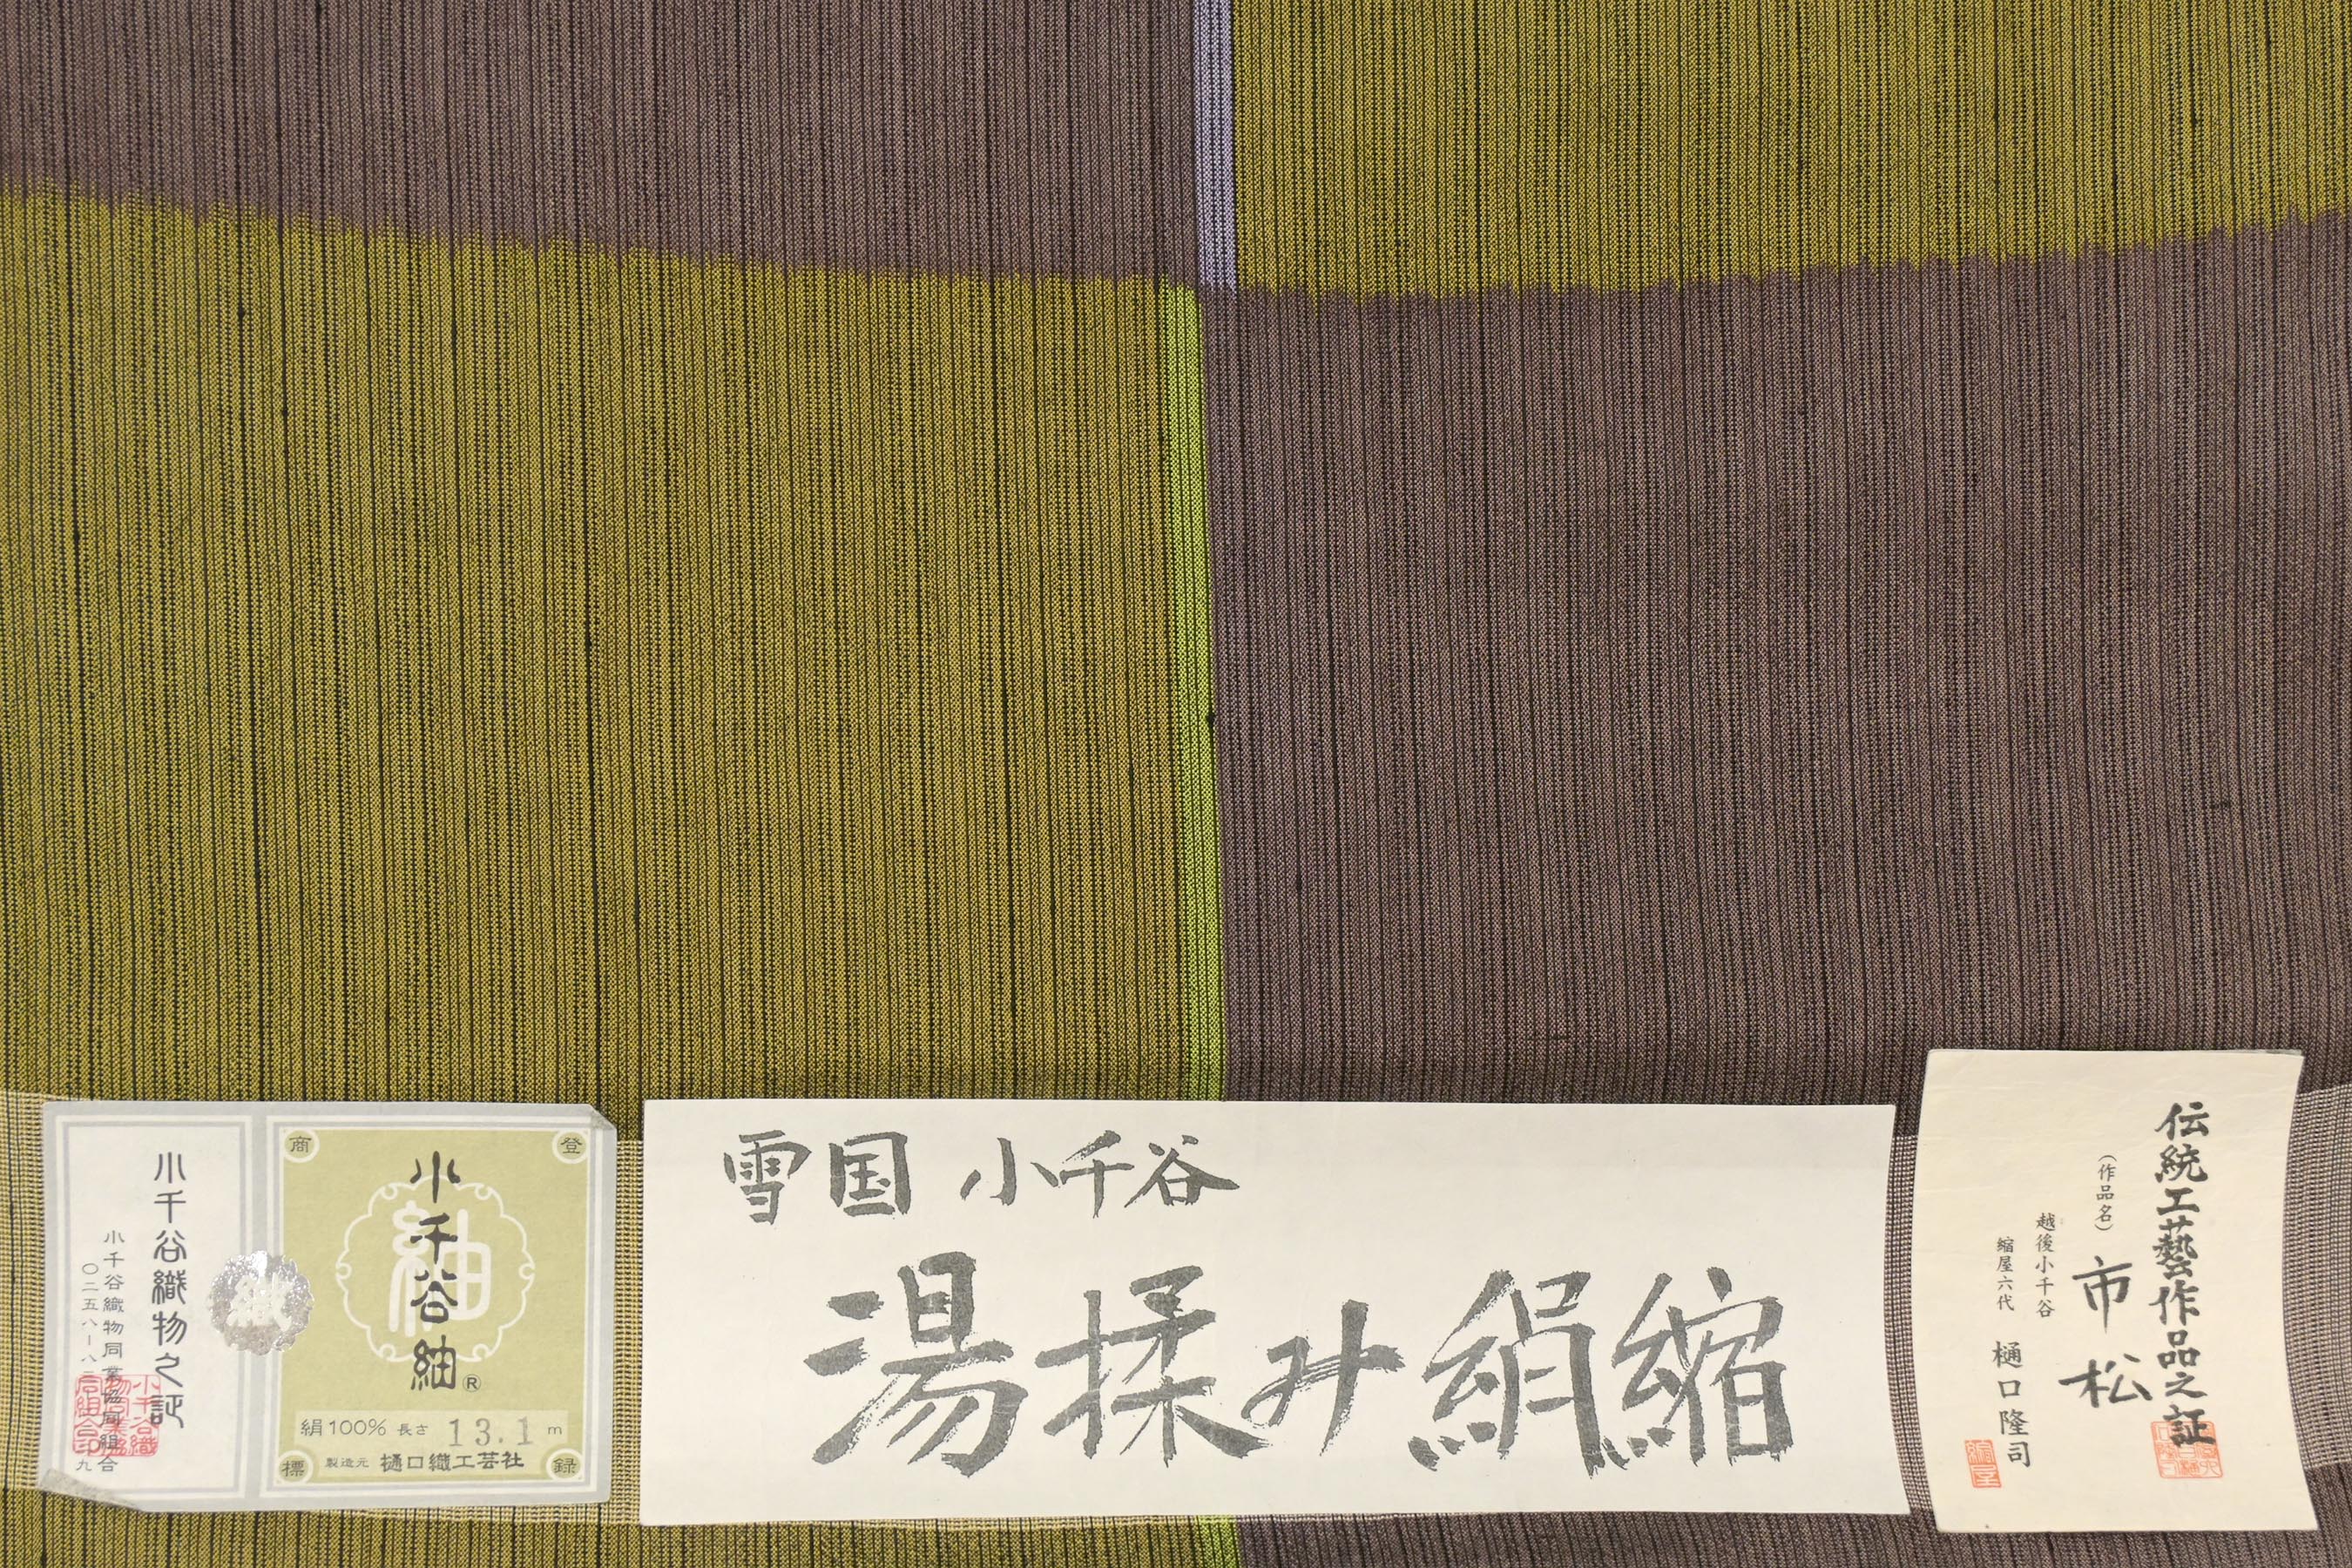 小千谷織物之証
小千谷織物同業協同組合
織
商
登
標
録
紬
小千谷紬®
絹100% 長さ 13.1 m
製造元 樋口織工芸社
雪国 小千谷
湯揉み絹縮
伝統工藝作品之証
(作品名) 市松
越後小千谷
縮屋六代 樋口隆司